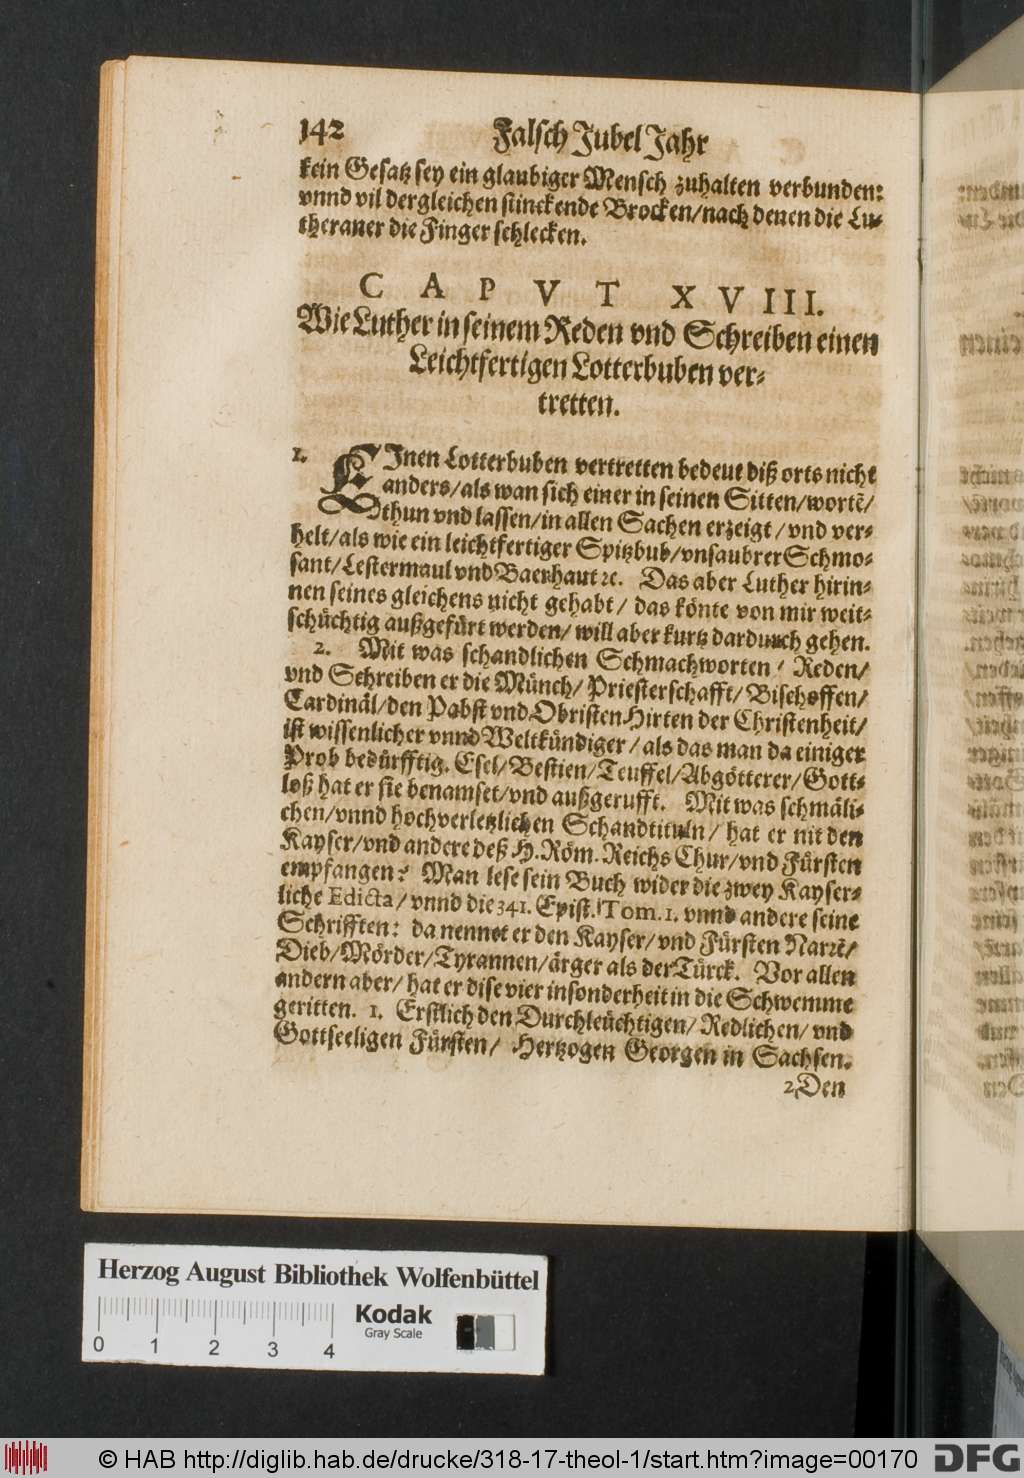 142 Falsch Jubel Jahr
kein Gesatz sey ein glaubiger Mensch zuhalten verbunden:
vnnd vil dergleichen stinckende Brocken/nach denen die Lu-
theraner die Finger schlecken.
CAPVT XVIII.
Wie Luther in seinem Reden vnd Schreiben einen
Leichtfertigen Lotterbuben ver-
tretten.
1. EInen Lotterbuben vertretten bedeut diß orts nicht
anders/als wan sich einer in seinen Sitten/wortẽ/
thun vnd lassen/in allen Sachen erzeigt/vnd ver-
helt/als wie ein leichtfertiger Spitzbub/vnsaubrer Schmo-
sant/Lestermaul vnd Baernhaut ꝛc. Das aber Luther hirin-
nen seines gleichens nicht gehabt/ das könte von mir weit-
schüchtig außgefürt werden/ will aber kurtz dardurch gehen.
2. Mit was schandlichen Schmachworten/ Reden/
vnd Schreiben er die Münch/ Priesterschafft/ Bischoffen/
Cardinäl/den Pabst vnd Obristen Hirten der Christenheit/
ist wissenlicher vnnd Weltkündiger/als das man da einiger
Prob bedürfftig. Esel/Bestien/Teuffel/Abgötterer/Gott-
loß hat er sie benamset/vnd außgerufft. Mit was schmäli-
chen/vnnd hochverletzlichen Schandtituln/ hat er nit den
Kayser/vnd andere deß H. Röm. Reichs Chur/vnd Fürsten
empfangen? Man lese sein Buch wider die zwey Kayser-
liche Edicta/ vnnd die 341. Epist. Tom. 1. vnnd andere seine
Schrifften: da nennet er den Kayser/vnd Fürsten Narrẽ/
Dieb/Mörder/Tyrannen/ärger als der Türck. Vor allen
andern aber/ hat er dise vier insonderheit in die Schwemme
geritten. 1. Erstlich den Durchleüchtigen/ Redlichen/ vnd
Gottseeligen Fürsten/ Hertzogen Georgen in Sachsen.
2. Den
Herzog August Bibliothek Wolfenbüttel
Kodak
Gray Scale
0 1 2 3 4
© HAB http://diglib.hab.de/drucke/318-17-theol-1/start.htm?image=00170 DFG